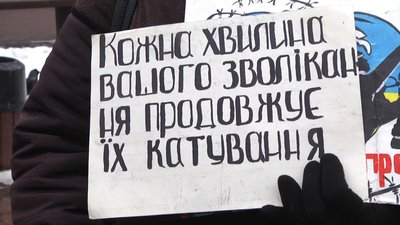 Кожна хвилина
вашого зволікан
ня продовжує
їх катування